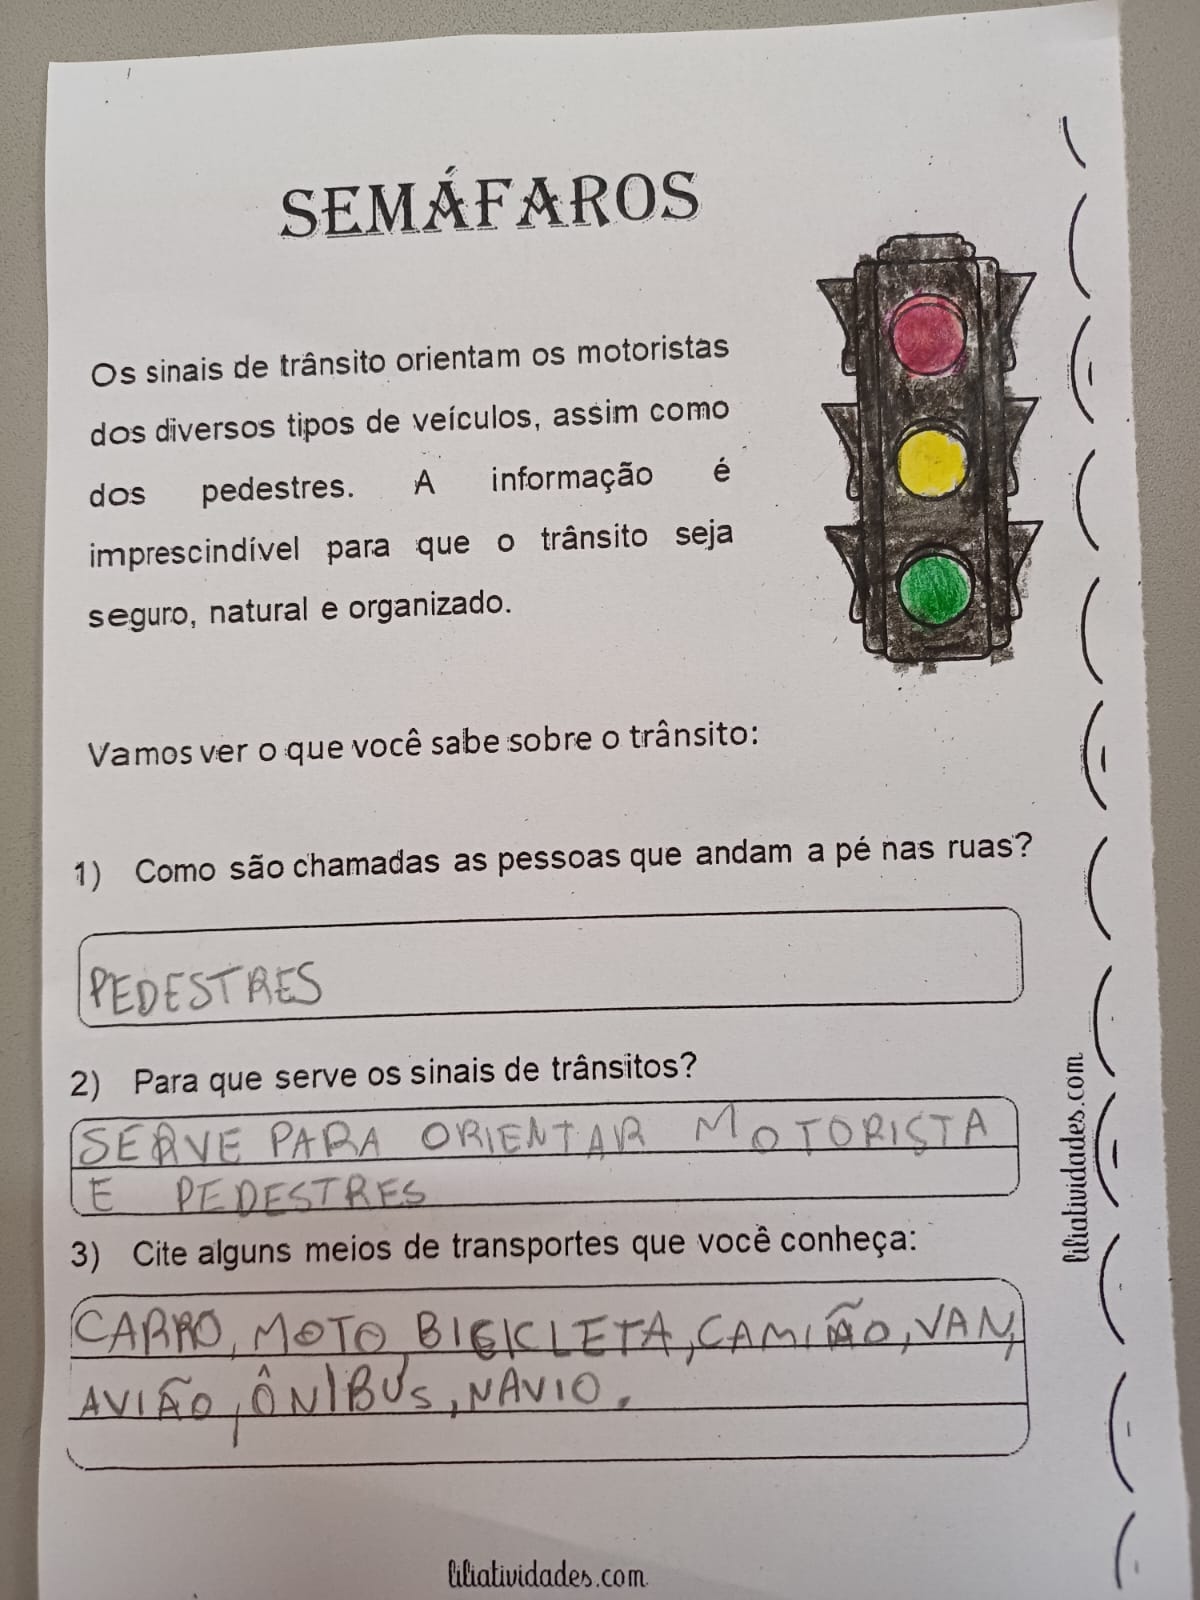 SEMÁFAROS
Os sinais de trânsito orientam os motoristas
dos diversos tipos de veículos, assim como
dos pedestres. A informação é
imprescindível para que o trânsito seja
seguro, natural e organizado.
Vamos ver o que você sabe sobre o trânsito:
1) Como são chamadas as pessoas que andam a pé nas ruas?
PEDESTRES
2) Para que serve os sinais de trânsitos?
SERVE PARA ORIENTAR MOTORISTA
E PEDESTRES
3) Cite alguns meios de transportes que você conheça:
CARRO, MOTO, BICICLETA, CAMIÃO, VAN,
AVIÃO, ÔNIBUS, NAVIO.
liliatividades.com
liliatividades.com